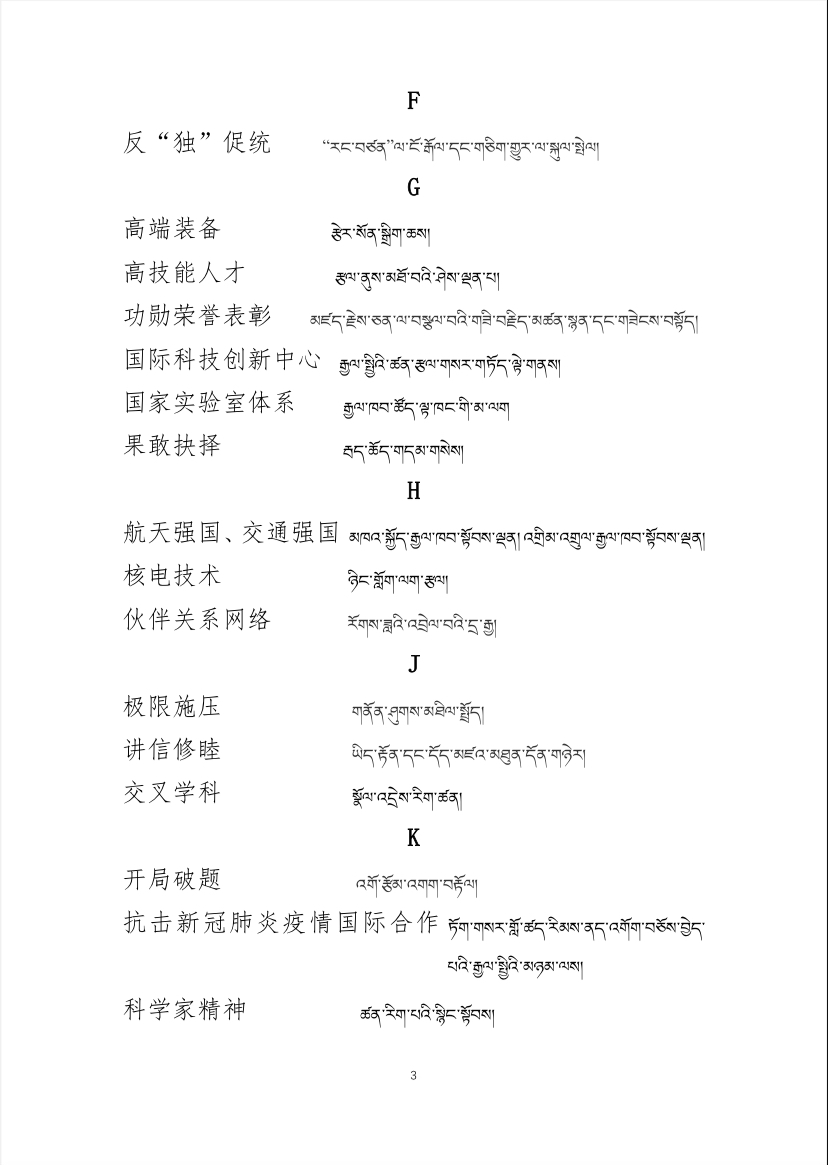 F
反“独”促统 “རང་བཙན”ལ་ངོ་རྒོལ་དང་གཅིག་གྱུར་ལ་སྐུལ་སྤེལ།
G
高端装备 རྩེར་སོན་སྒྲིག་ཆས།
高技能人才 རྩལ་ནུས་མཐོ་བའི་ཤེས་ལྡན་པ།
功勋荣誉表彰 མཛད་རྗེས་ཅན་ལ་བསྩལ་བའི་གཟི་བརྗིད་མཚན་སྙན་དང་གཟེངས་བསྟོད།
国际科技创新中心 རྒྱལ་སྤྱིའི་ཚན་རྩལ་གསར་གཏོད་ལྟེ་གནས།
国家实验室体系 རྒྱལ་ཁབ་ཚོད་ལྟ་ཁང་གི་མ་ལག
果敢抉择 རྦད་ཆོད་གདམ་གསེས།
H
航天强国、交通强国 མཁའ་སྐྱོད་རྒྱལ་ཁབ་སྟོབས་ལྡན། འགྲིམ་འགྲུལ་རྒྱལ་ཁབ་སྟོབས་ལྡན།
核电技术 ཉིང་གློག་ལག་རྩལ།
伙伴关系网络 རོགས་ཟླའི་འབྲེལ་བའི་དྲ་རྒྱ།
J
极限施压 གནོན་ཤུགས་མཐིལ་སྤྲོད།
讲信修睦 ཡིད་རྟོན་དང་དོད་མཛའ་མཐུན་དོན་གཉེར།
交叉学科 སྣོལ་འདྲེས་རིག་ཚན།
K
开局破题 འགོ་རྩོམ་འགག་བརྟོལ།
抗击新冠肺炎疫情国际合作 ཏོག་གསར་གློ་ཚད་རིམས་ནད་འགོག་བཅོས་བྱེད་
པའི་རྒྱལ་སྤྱིའི་མཉམ་ལས།
科学家精神 ཚན་རིག་པའི་སྙིང་སྟོབས།
3